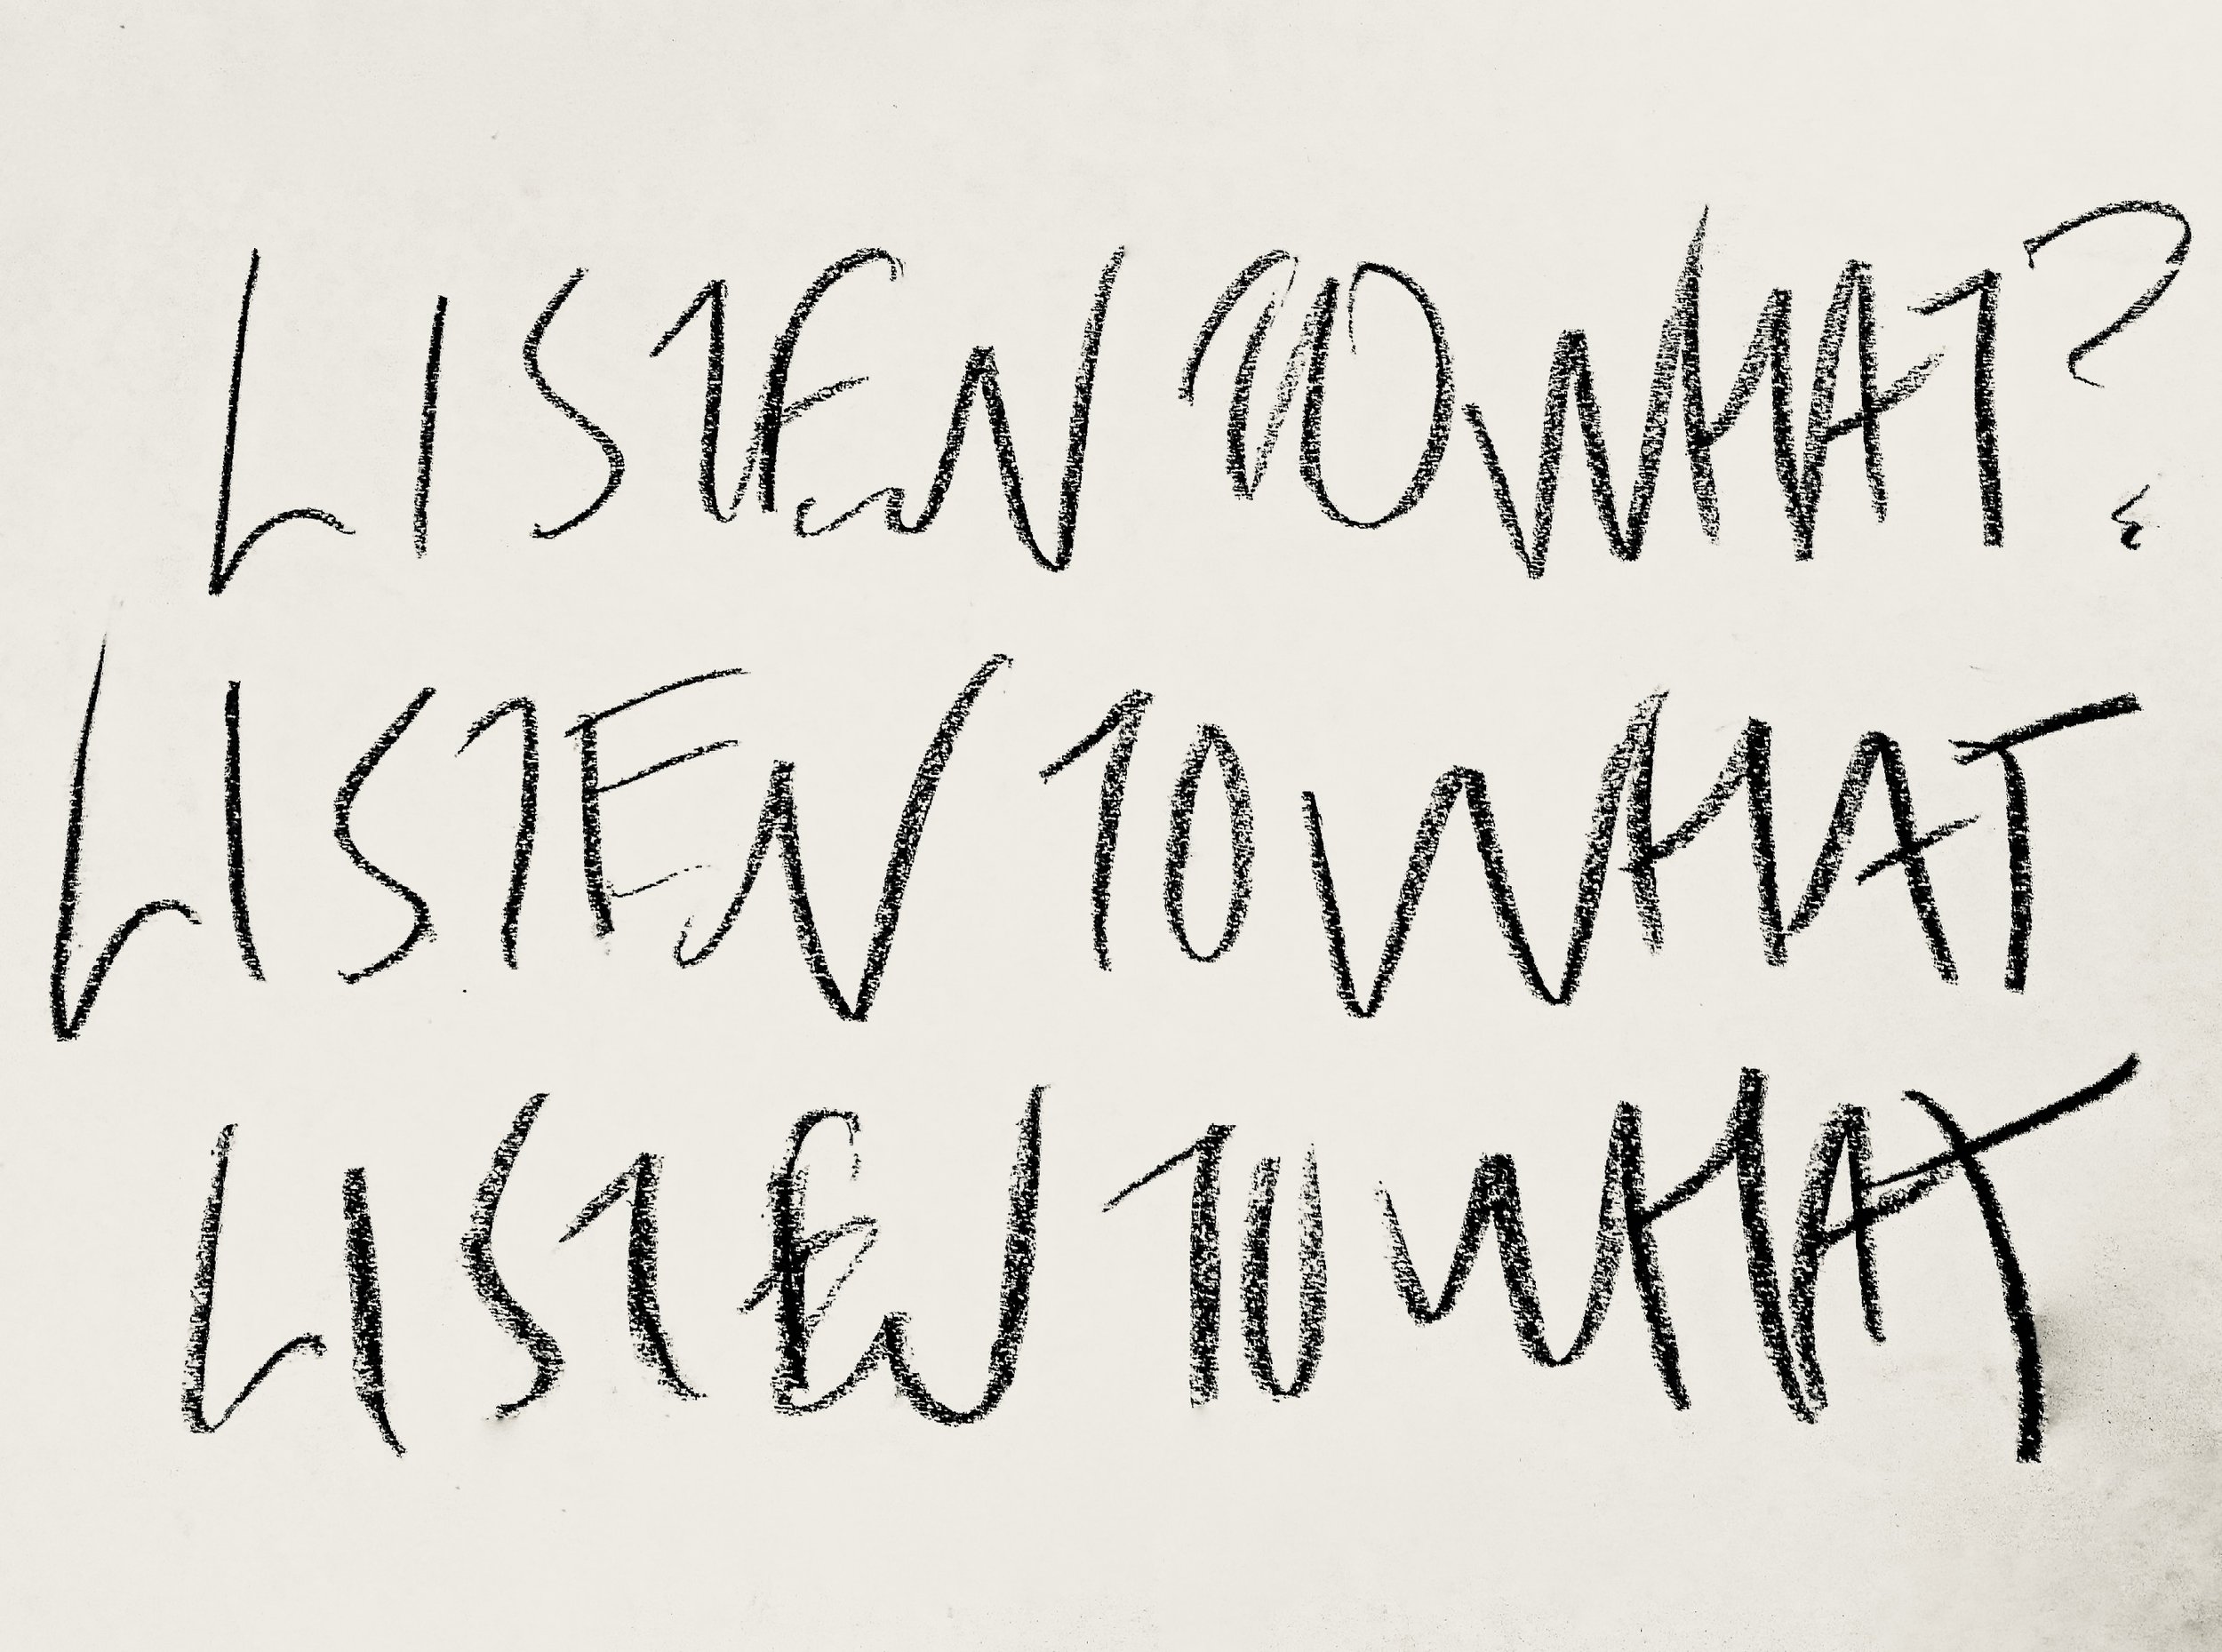 LISTEN TO WHAT?
LISTEN TO WHAT
LISTEN TO WHAT